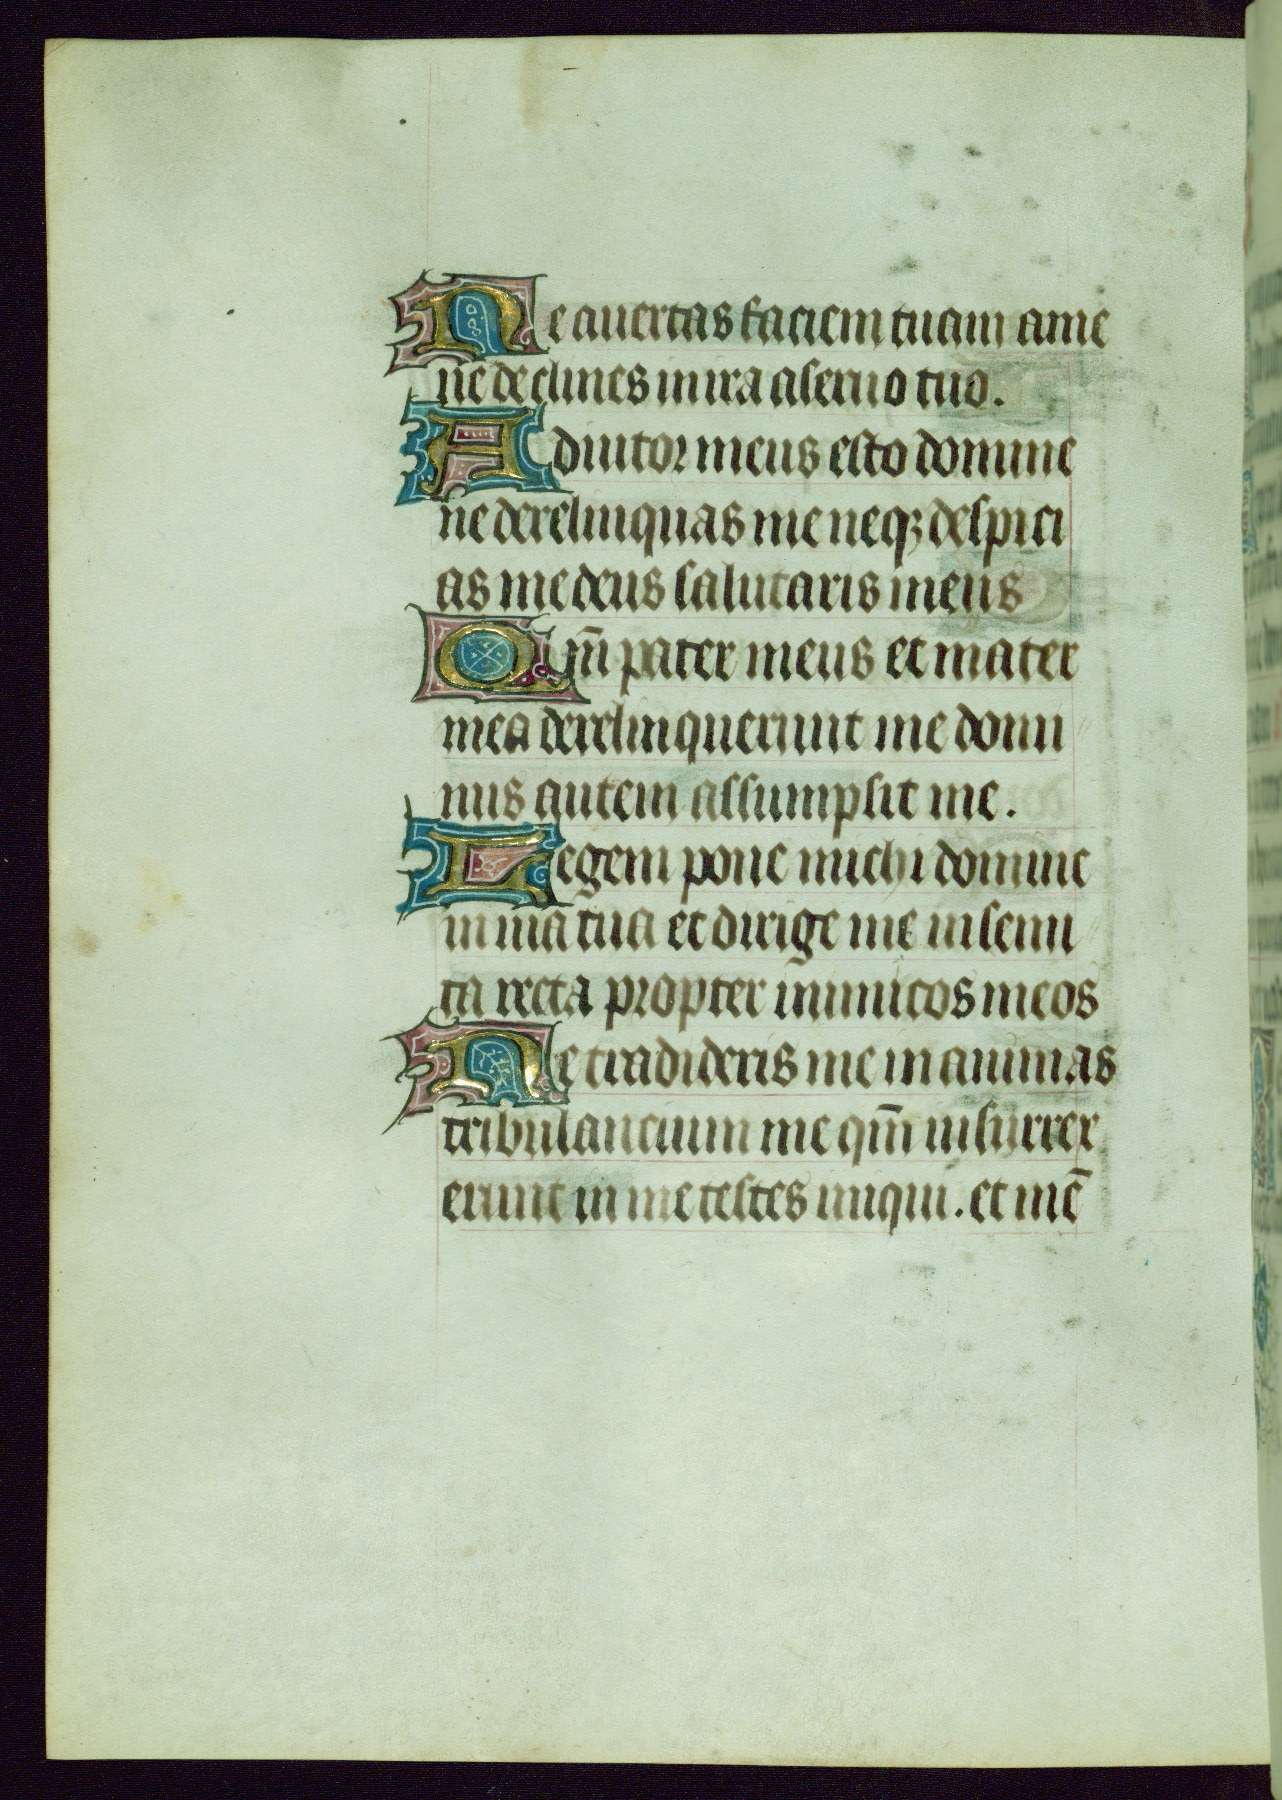 Ne auertas faciem tuam a me
ne declines in ira a seruo tuo.
Adiutor meus esto domine
ne derelinquas me neqꝫ despici
as me deus salutaris meus
Qm̄ pater meus et mater
mea derelinquerunt me domi
nus autem assumpsit me.
Legem pone michi domine
in uia tua et dirige me in semi
ta recta propter inimicos meos
Ne tradideris me in animas
tribulancium me qm̄ insurrex
erunt in me testes iniqui. et mē